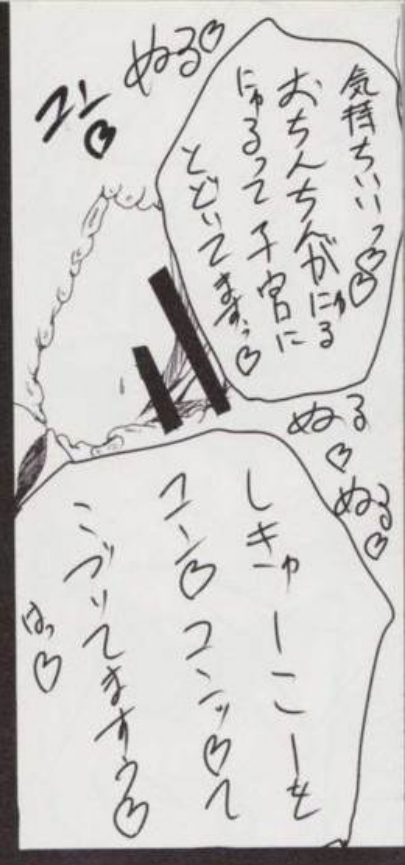 気持ちいいっ♡♡
おちんちんがにゅる
にゅるって子宮に
とどいてますぅ♡
ぬる♡
コン♡
ぬる♡
ぬる♡
しきゅーこーを
コン♡コンッ♡て
こづいてますぅ♡
はっ♡